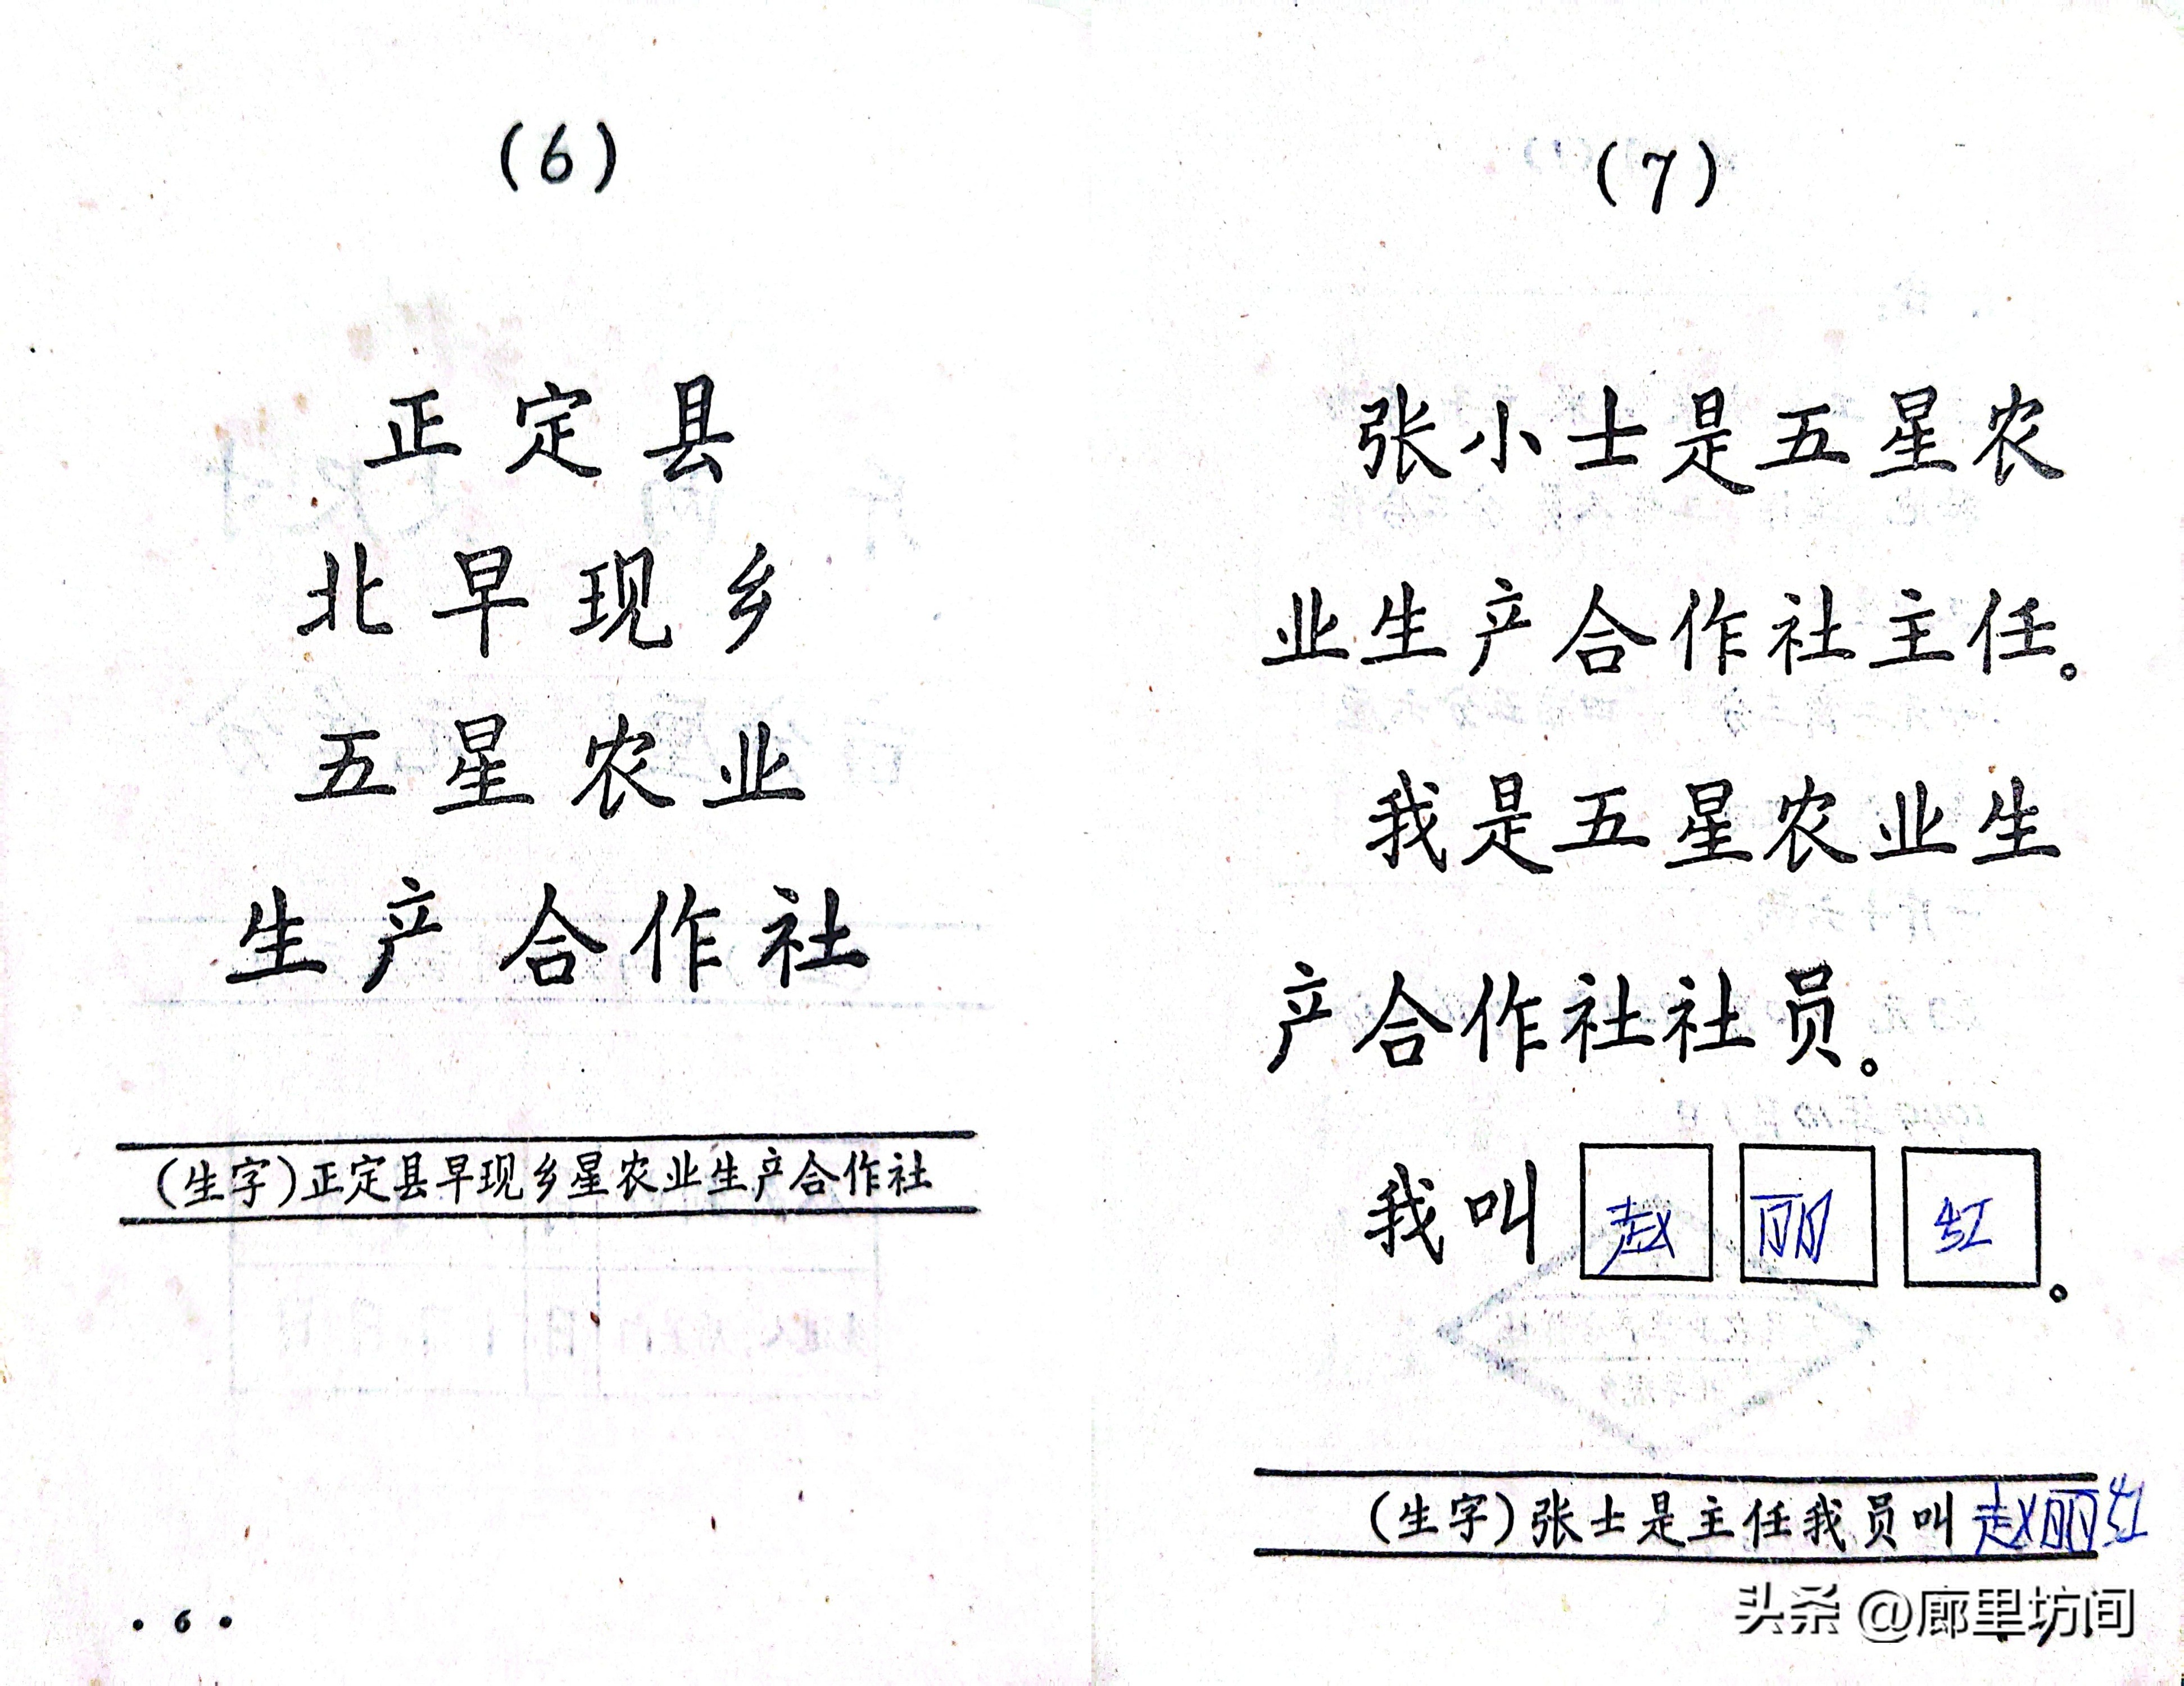 (6)
正定县
北早现乡
五星农业
生产合作社
(生字)正定县早现乡星农业生产合作社
·6·
(7)
张小士是五星农
业生产合作社主任。
我是五星农业生
产合作社社员。
我叫赵丽红。
(生字)张士是主任我员叫赵丽红
头条@廊里坊间